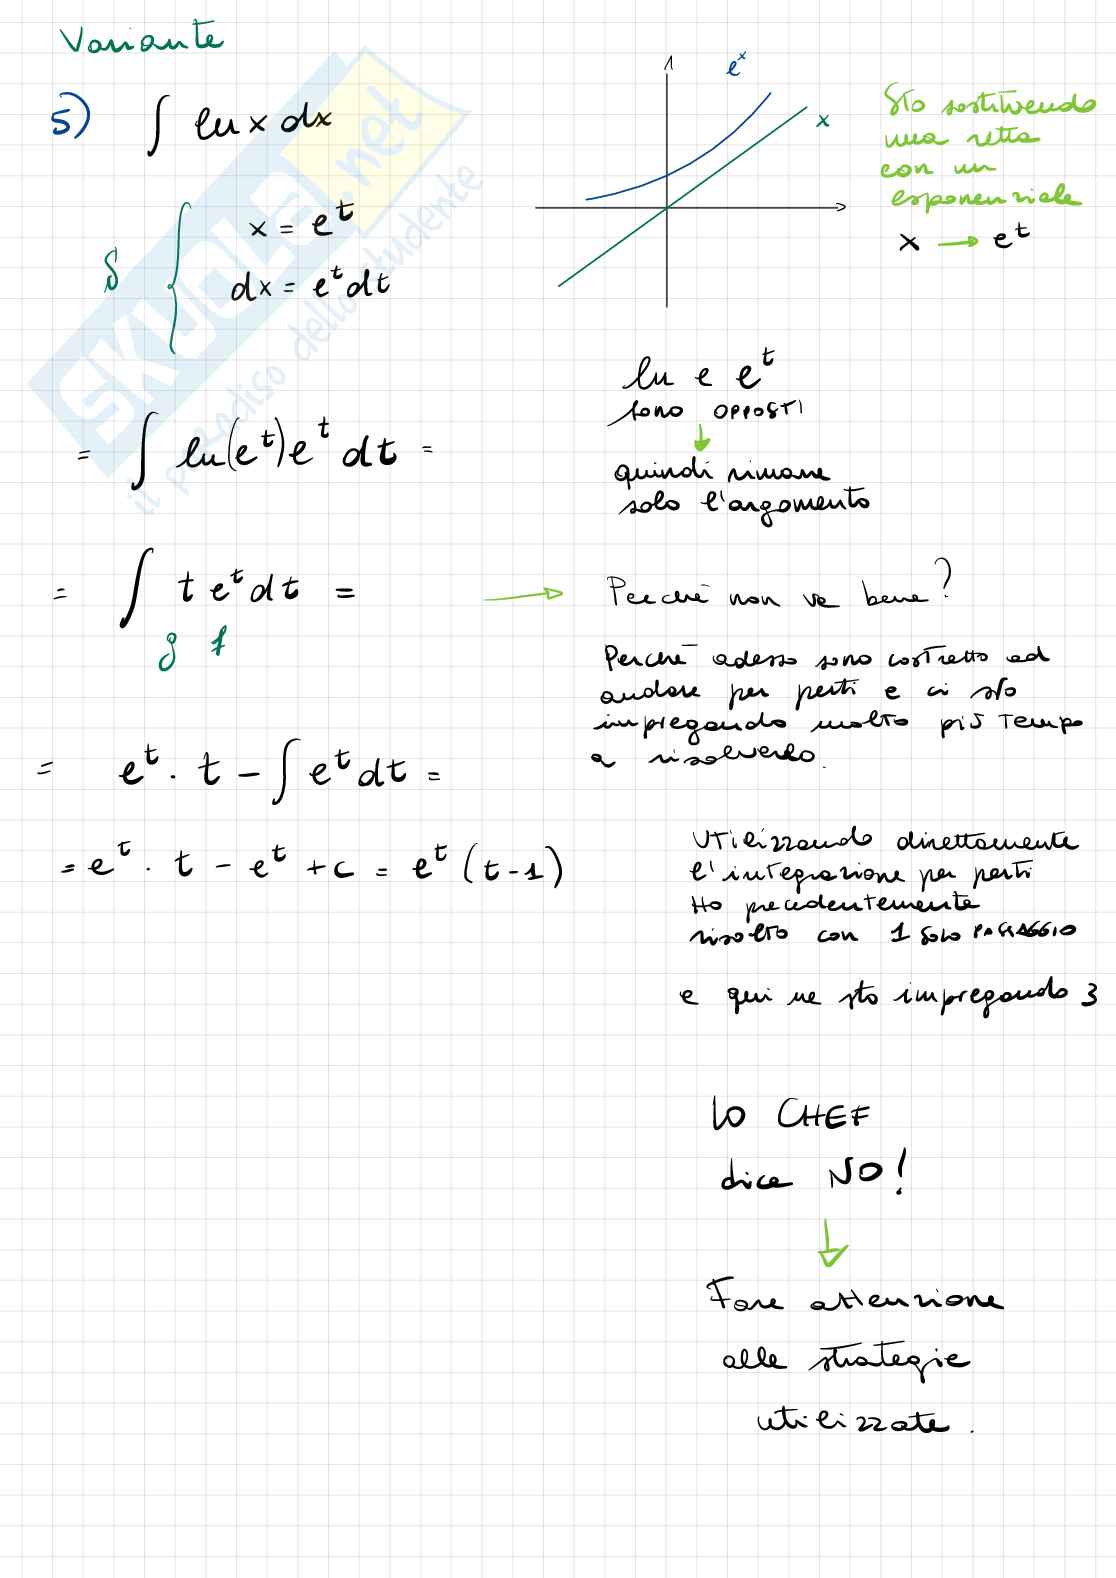 Variante
5) ∫ ln x dx
S { x = e^t
dx = e^t dt
e^x
x
Sto sostituendo
una retta
con un
esponenziale
x → e^t
ln e e^t
sono OPPOSTI
quindi rimane
solo l'argomento
= ∫ ln(e^t) e^t dt =
= ∫ t e^t dt =
g f
Perché non va bene?
Perché adesso sono costretto ad
andare per parti e ci sto
impiegando molto più tempo
a risolverlo.
= e^t · t - ∫ e^t dt =
= e^t · t - e^t + c = e^t (t-1)
Utilizzando direttamente
l'integrazione per parti
Ho precedentemente
risolto con 1 solo PASSAGGIO
e qui ne sto impiegando 3
LO CHEF
dice NO!
Fare attenzione
alle strategie
utilizzate.
SKUOLA.net
il paradiso dello studente